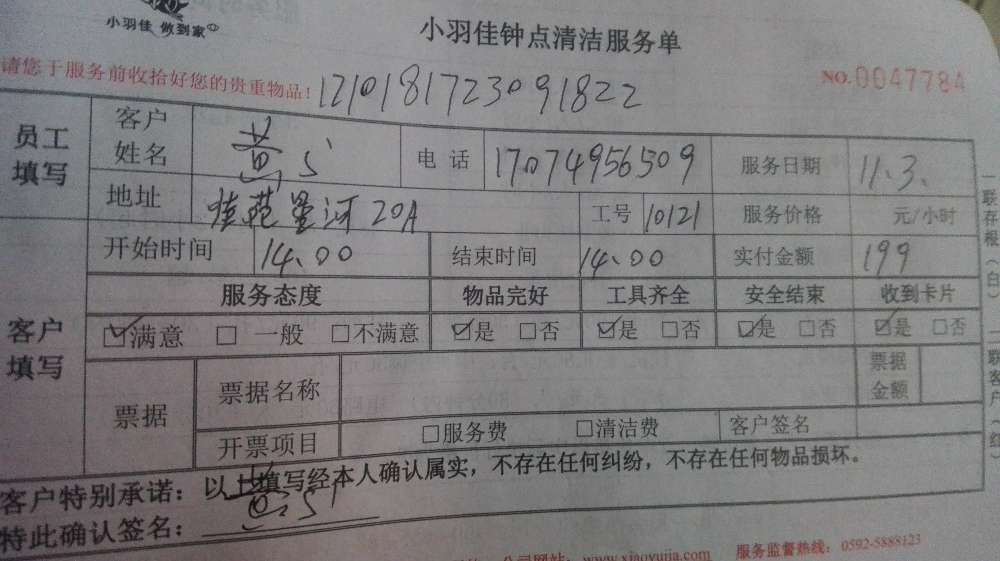 小羽佳 做到家
小羽佳钟点清洁服务单
请您于服务前收拾好您的贵重物品!
1210181723091822
NO.0047784
员工填写
客户姓名 黄 电话 17074956509 服务日期 11.3.
地址 佳苑星河20A 工号 10121 服务价格 元/小时
开始时间 14.00 结束时间 14.00 实付金额 199
客户填写
服务态度 物品完好 工具齐全 安全结束 收到卡片
☑满意 □一般 □不满意 ☑是 □否 ☑是 □否 ☑是 □否 ☑是 □否
票据 票据名称 票据金额
开票项目 □服务费 □清洁费 客户签名
客户特别承诺：以上填写经本人确认属实，不存在任何纠纷，不存在任何物品损坏。
特此确认签名： 黄
www.xiaoyujia.com 服务监督热线：0592-5888123
一联存根（白）
二联客户（红）